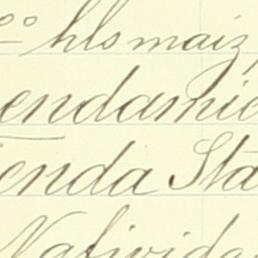 oo hls maiz,
endamie
enda Sta
Nativida